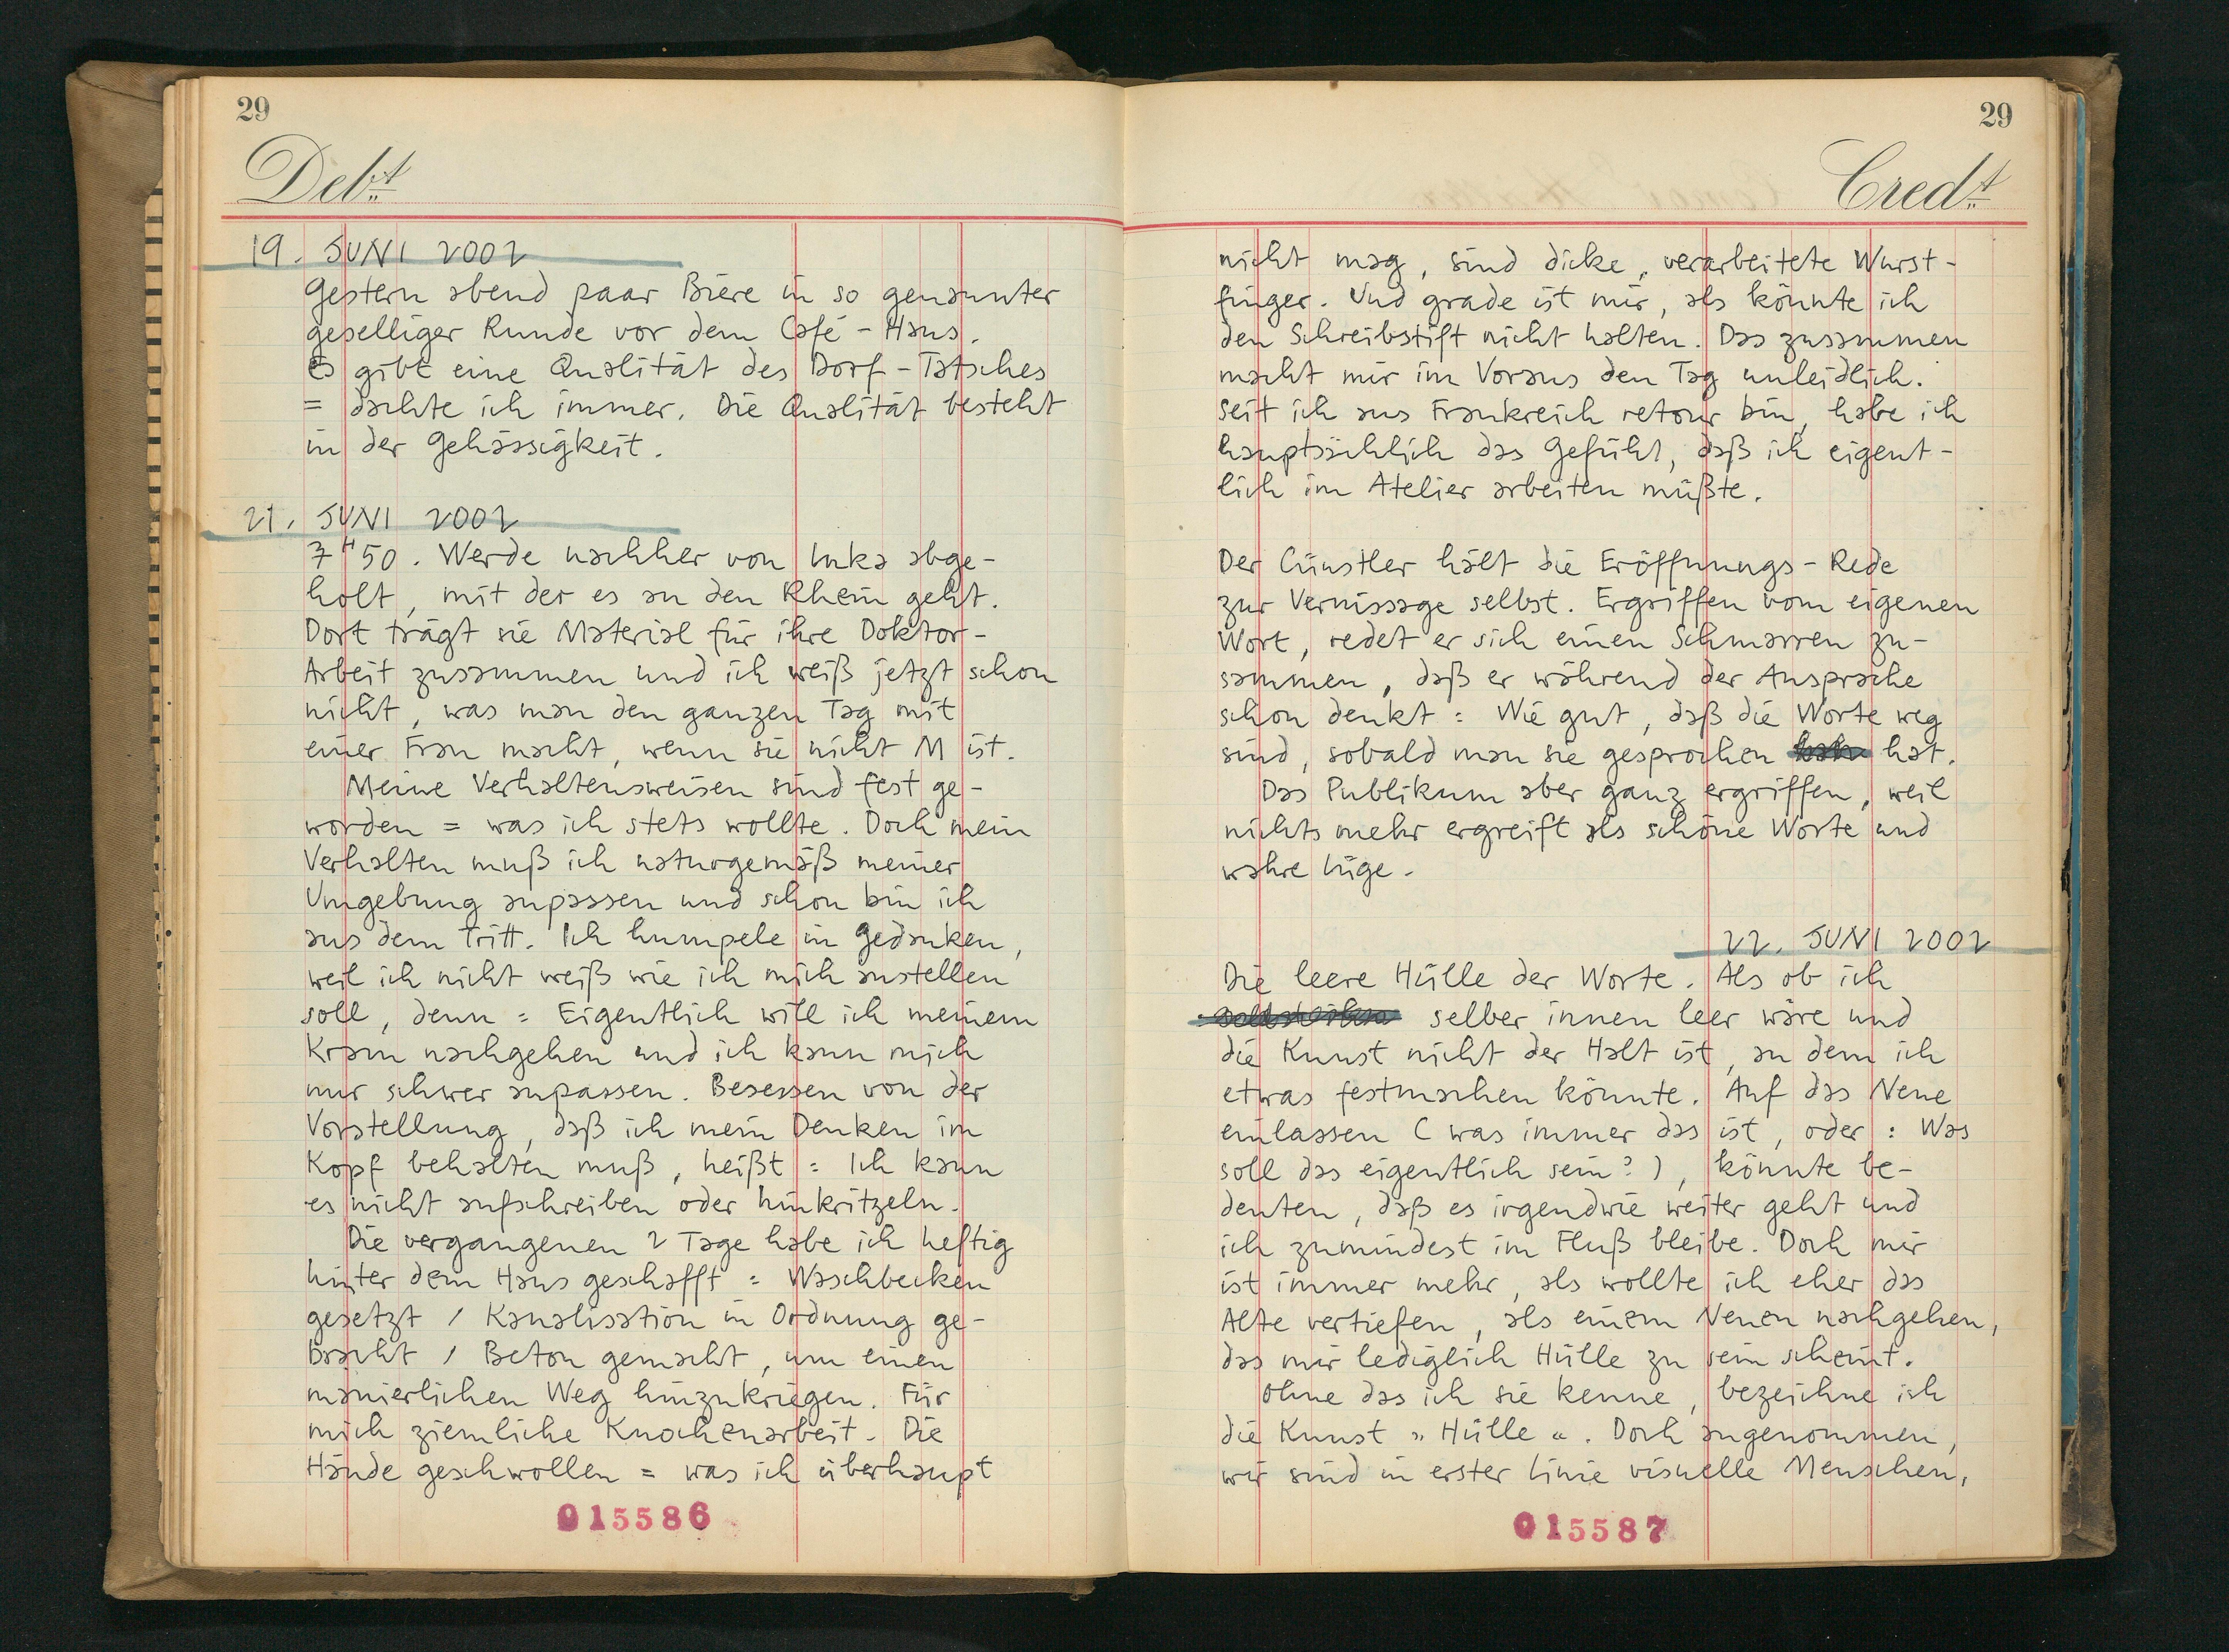 29
Debt
19. JUNI 2002
Gestern abend paar Biere in so genannter
geselliger Runde vor dem Café-Haus.
Es gibt eine Qualität des Dorf-Tatsches
= dachte ich immer. Die Qualität besteht
in der Gehässigkeit.
21. JUNI 2002
7H50. Werde nachher von Luka abge-
holt, mit der es an den Rhein geht.
Dort trägt sie Material für ihre Doktor-
Arbeit zusammen und ich weiß jetzt schon
nicht, was man den ganzen Tag mit
einer Frau macht, wenn sie nicht M ist.
Meine Verhaltensweisen sind fest ge-
worden = was ich stets wollte. Doch mein
Verhalten muß ich naturgemäß meiner
Umgebung anpassen und schon bin ich
aus dem Tritt. Ich humpele in Gedanken,
weil ich nicht weiß wie ich mich anstellen
soll, denn = Eigentlich will ich meinem
Kram nachgehen und ich kann mich
nur schwer anpassen. Besessen von der
Vorstellung, daß ich mein Denken im
Kopf behalten muß, heißt = Ich kann
es nicht aufschreiben oder hinkritzeln.
Die vergangenen 2 Tage habe ich heftig
hinter dem Haus geschafft = Waschbecken
gesetzt / Kanalisation in Ordnung ge-
bracht / Beton gemacht, um einen
manierlichen Weg hinzukriegen. Für
mich ziemliche Knochenarbeit. Die
Hände geschwollen = was ich überhaupt
015586
29
Credt
nicht mag, sind dicke, verarbeitete Wurst-
finger. Und grade ist mir, als könnte ich
den Schreibstift nicht halten. Das zusammen
macht mir im Voraus den Tag unleidlich.
Seit ich aus Frankreich retour bin, habe ich
hauptsächlich das Gefühl, daß ich eigent-
lich im Atelier arbeiten müßte.
Der Cünstler hält die Eröffnungs-Rede
zur Vernissage selbst. Ergriffen vom eigenen
Wort, redet er sich einen Schmarren zu-
sammen, daß er während der Ansprache
schon denkt = Wie gut, daß die Worte weg
sind, sobald man sie gesprochen hat.
Das Publikum aber ganz ergriffen, weil
nichts mehr ergreift als schöne Worte und
wahre Lüge.
22. JUNI 2002
Die leere Hülle der Worte. Als ob ich
selber innen leer wäre und
die Kunst nicht der Halt ist, an dem ich
etwas festmachen könnte. Auf das Neue
einlassen (was immer das ist, oder : Was
soll das eigentlich sein?), könnte be-
deuten, daß es irgendwie weiter geht und
ich zumindest im Fluß bleibe. Doch mir
ist immer mehr, als wollte ich eher das
Alte vertiefen, als einem Neuen nachgehen,
das mir lediglich Hülle zu sein scheint.
Ohne das ich sie kenne, bezeichne ich
die Kunst „Hülle“. Doch angenommen,
wir sind in erster Linie visuelle Menschen,
015587